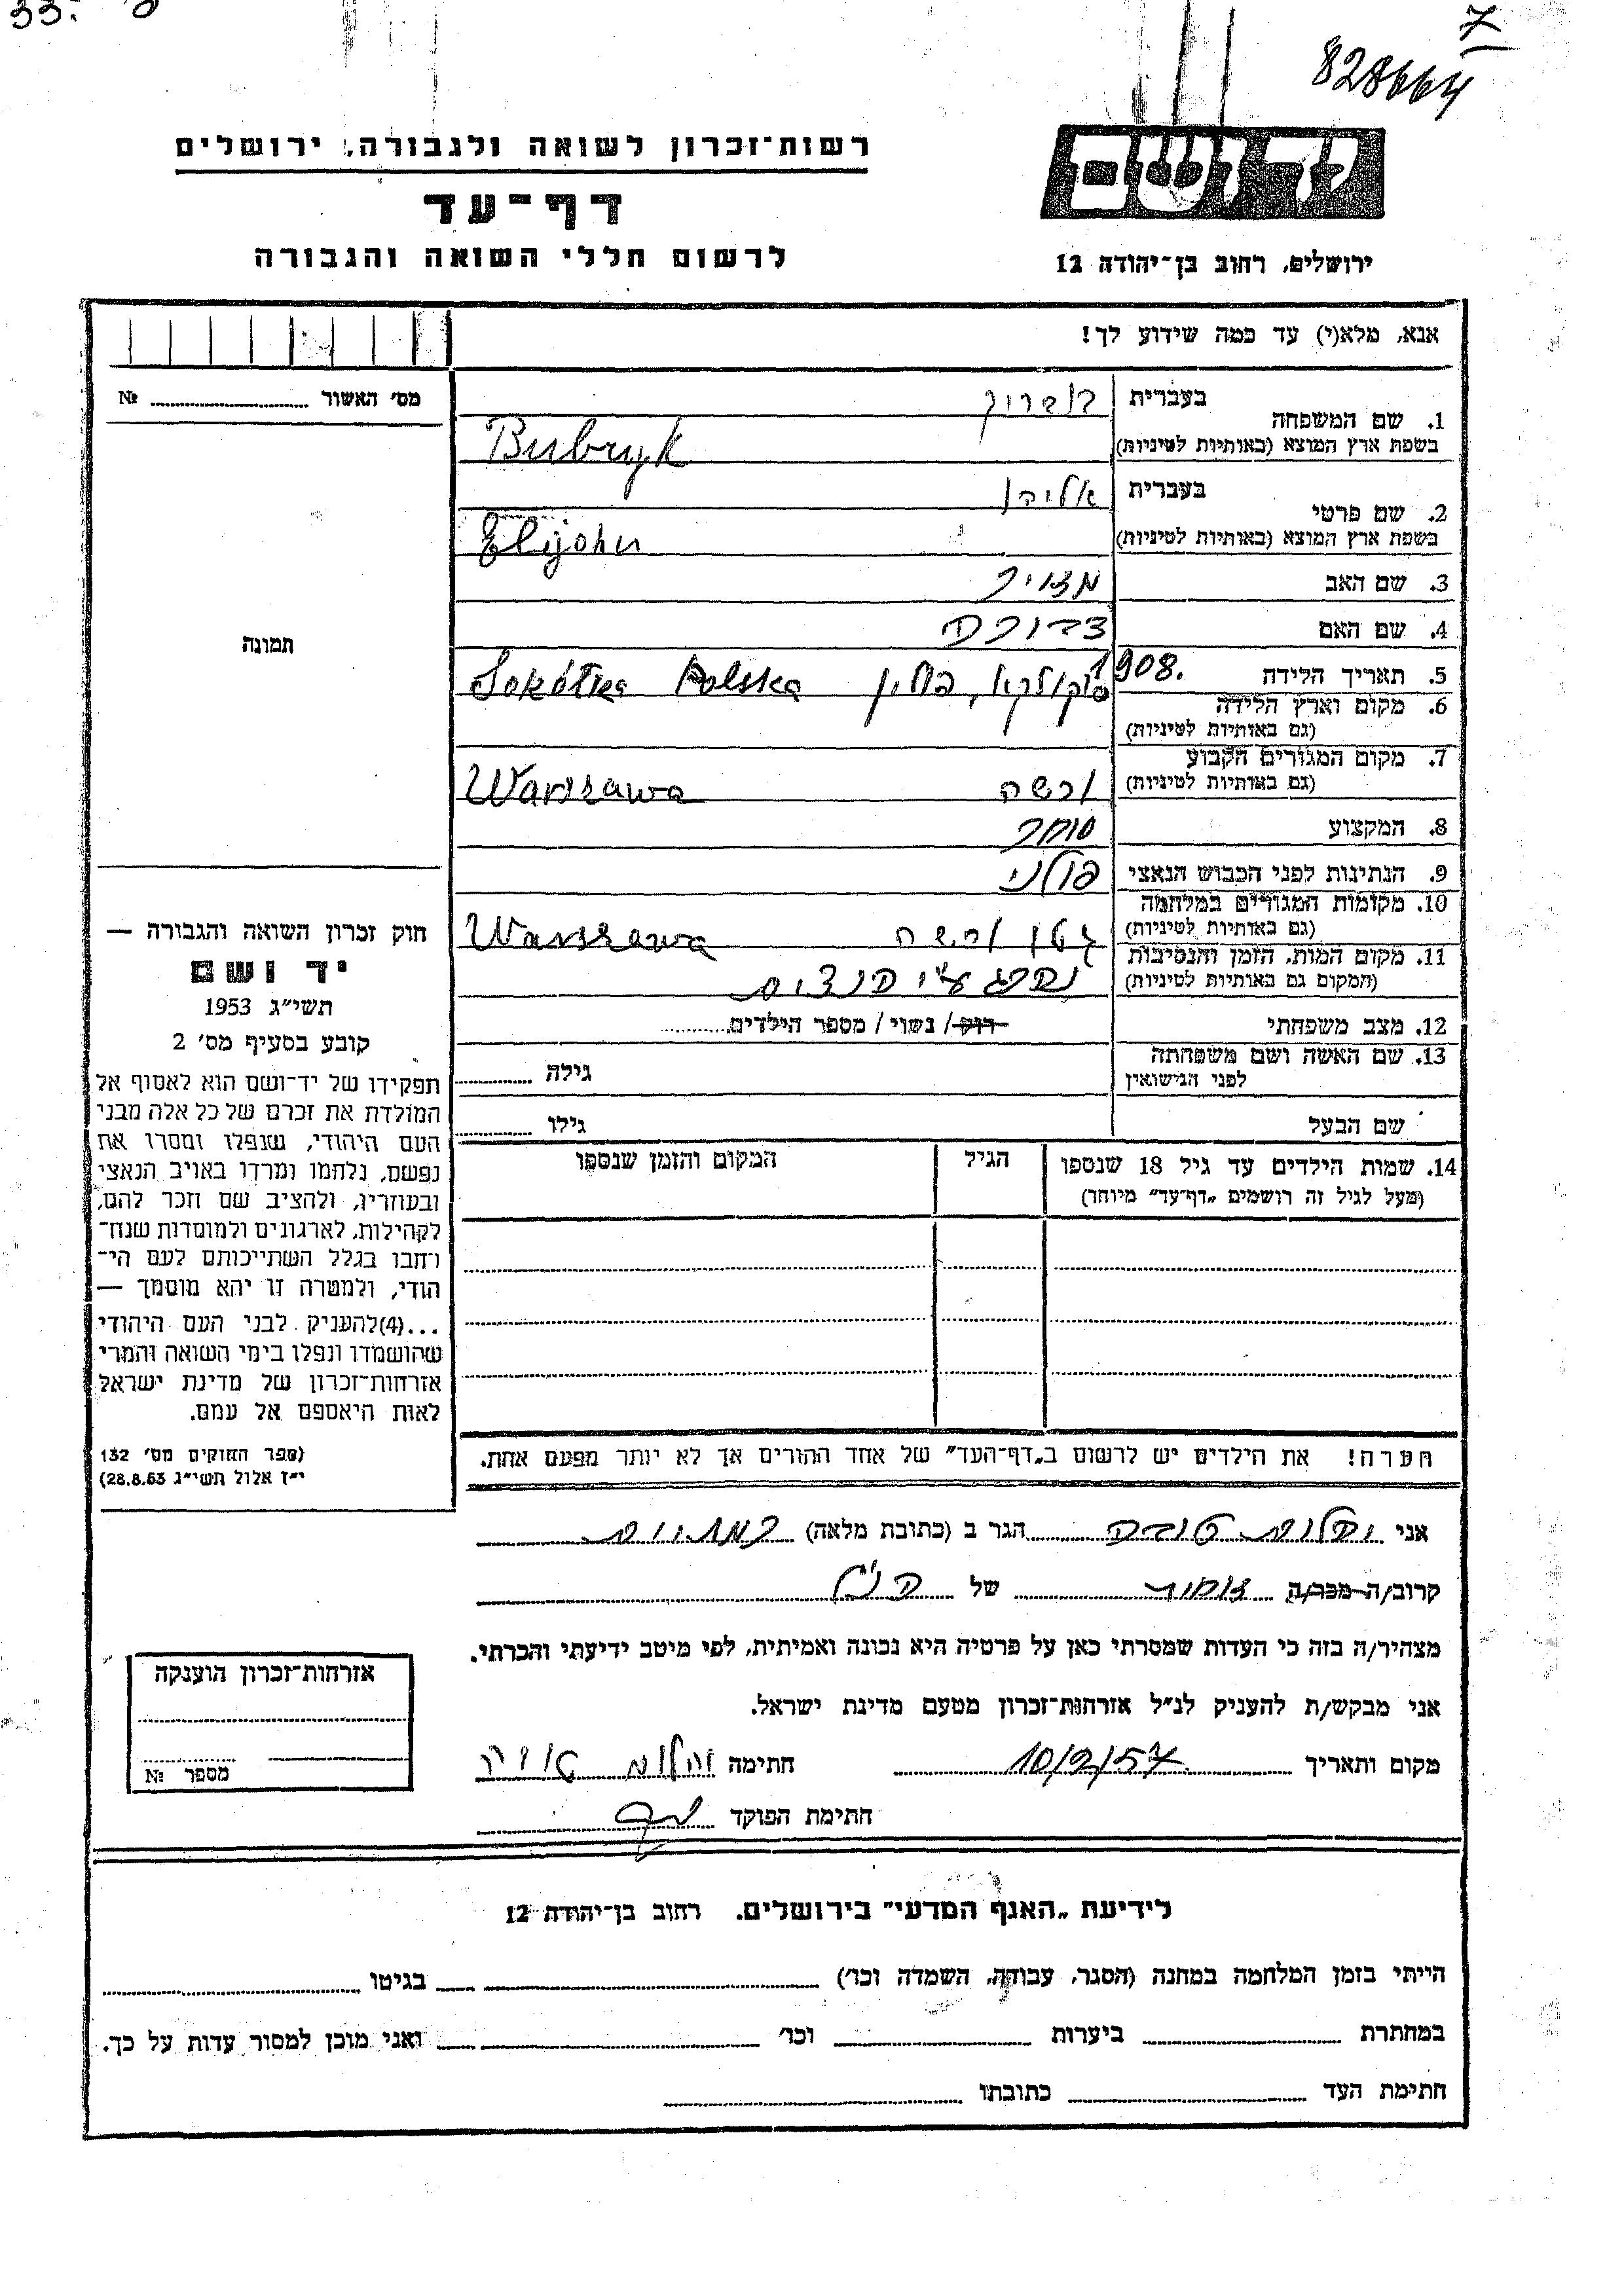 33.
7
828664
רשות־זכרון לשואה ולגבורה, ירושלים
דף־עד
לרשום חללי השואה והגבורה
יד ושם
ירושלים, רחוב בן־יהודה 12
אנא, מלא(י) עד כמה שידוע לך!
מס' האשור № 
1. שם המשפחה
בעברית בובריק
בשפת ארץ המוצא (באותיות לטיניות) Bubryk
2. שם פרטי
בעברית אליהו
בשפת ארץ המוצא (באותיות לטיניות) Elijahu
3. שם האב מאיר
4. שם האם
5. תאריך הלידה 1908.
6. מקום וארץ הלידה סוקולקא, פולין Sokółka Polska
(גם באותיות לטיניות)
7. מקום המגורים הקבוע
(גם באותיות לטיניות) ורשה Warszawa
8. המקצוע סוחר
9. הנתינות לפני הכבוש הנאצי פולני
10. מקומות המגורים במלחמה
(גם באותיות לטיניות) גטו ורשה Warszawa
11. מקום המות, הזמן והנסיבות
(המקום גם באותיות לטיניות) נהרג ע"י הנאצים
12. מצב משפחתי רוק / נשוי / מספר הילדים
13. שם האשה ושם משפחתה
לפני הנישואין
גילה
שם הבעל
גילו
14. שמות הילדים עד גיל 18 שנספו
(מעל לגיל זה רושמים „דף־עד" מיוחד)
הגיל
המקום והזמן שנספו
הערה! את הילדים יש לרשום ב„דף־העד" של אחד ההורים אך לא יותר מפעם אחת.
תמונה
חוק זכרון השואה והגבורה —
יד ושם
תשי"ג 1953
קובע בסעיף מס' 2
תפקידו של יד־ושם הוא לאסוף אל
המולדת את זכרם של כל אלה מבני
העם היהודי, שנפלו ומסרו את
נפשם, נלחמו ומרדו באויב הנאצי
ובעוזריו, ולהציב שם וזכר להם,
לקהילות, לארגונים ולמוסדות שנח־
רחבו בגלל השתייכותם לעם הי־
הודי, ולמטרה זו יהא מוסמך —
...(4)להעניק לבני העם היהודי
שהושמדו ונפלו בימי השואה והמרי
אזרחות־זכרון של מדינת ישראל
לאות היאספם אל עמם.
(ספר החוקים מס' 132
י"ז אלול תשי"ג 28.8.53)
אני הגר ב (כתובת מלאה)
קרוב/ה מכר/ה של הנ"ל
מצהיר/ה בזה כי העדות שמסרתי כאן על פרטיה היא נכונה ואמיתית, לפי מיטב ידיעתי והכרתי.
אני מבקש/ת להעניק לנ"ל אזרחות־זכרון מטעם מדינת ישראל.
מקום ותאריך 10/2/57 חתימה
חתימת הפוקד
אזרחות־זכרון הוענקה
מספר №
לידיעת „האגף המדעי" בירושלים. רחוב בן־יהודה 12
הייתי בזמן המלחמה במחנה (הסגר, עבודה, השמדה וכו') בגיטו
במחתרת ביערות וכו' ואני מוכן למסור עדות על כך.
חתימת העד כתובתו